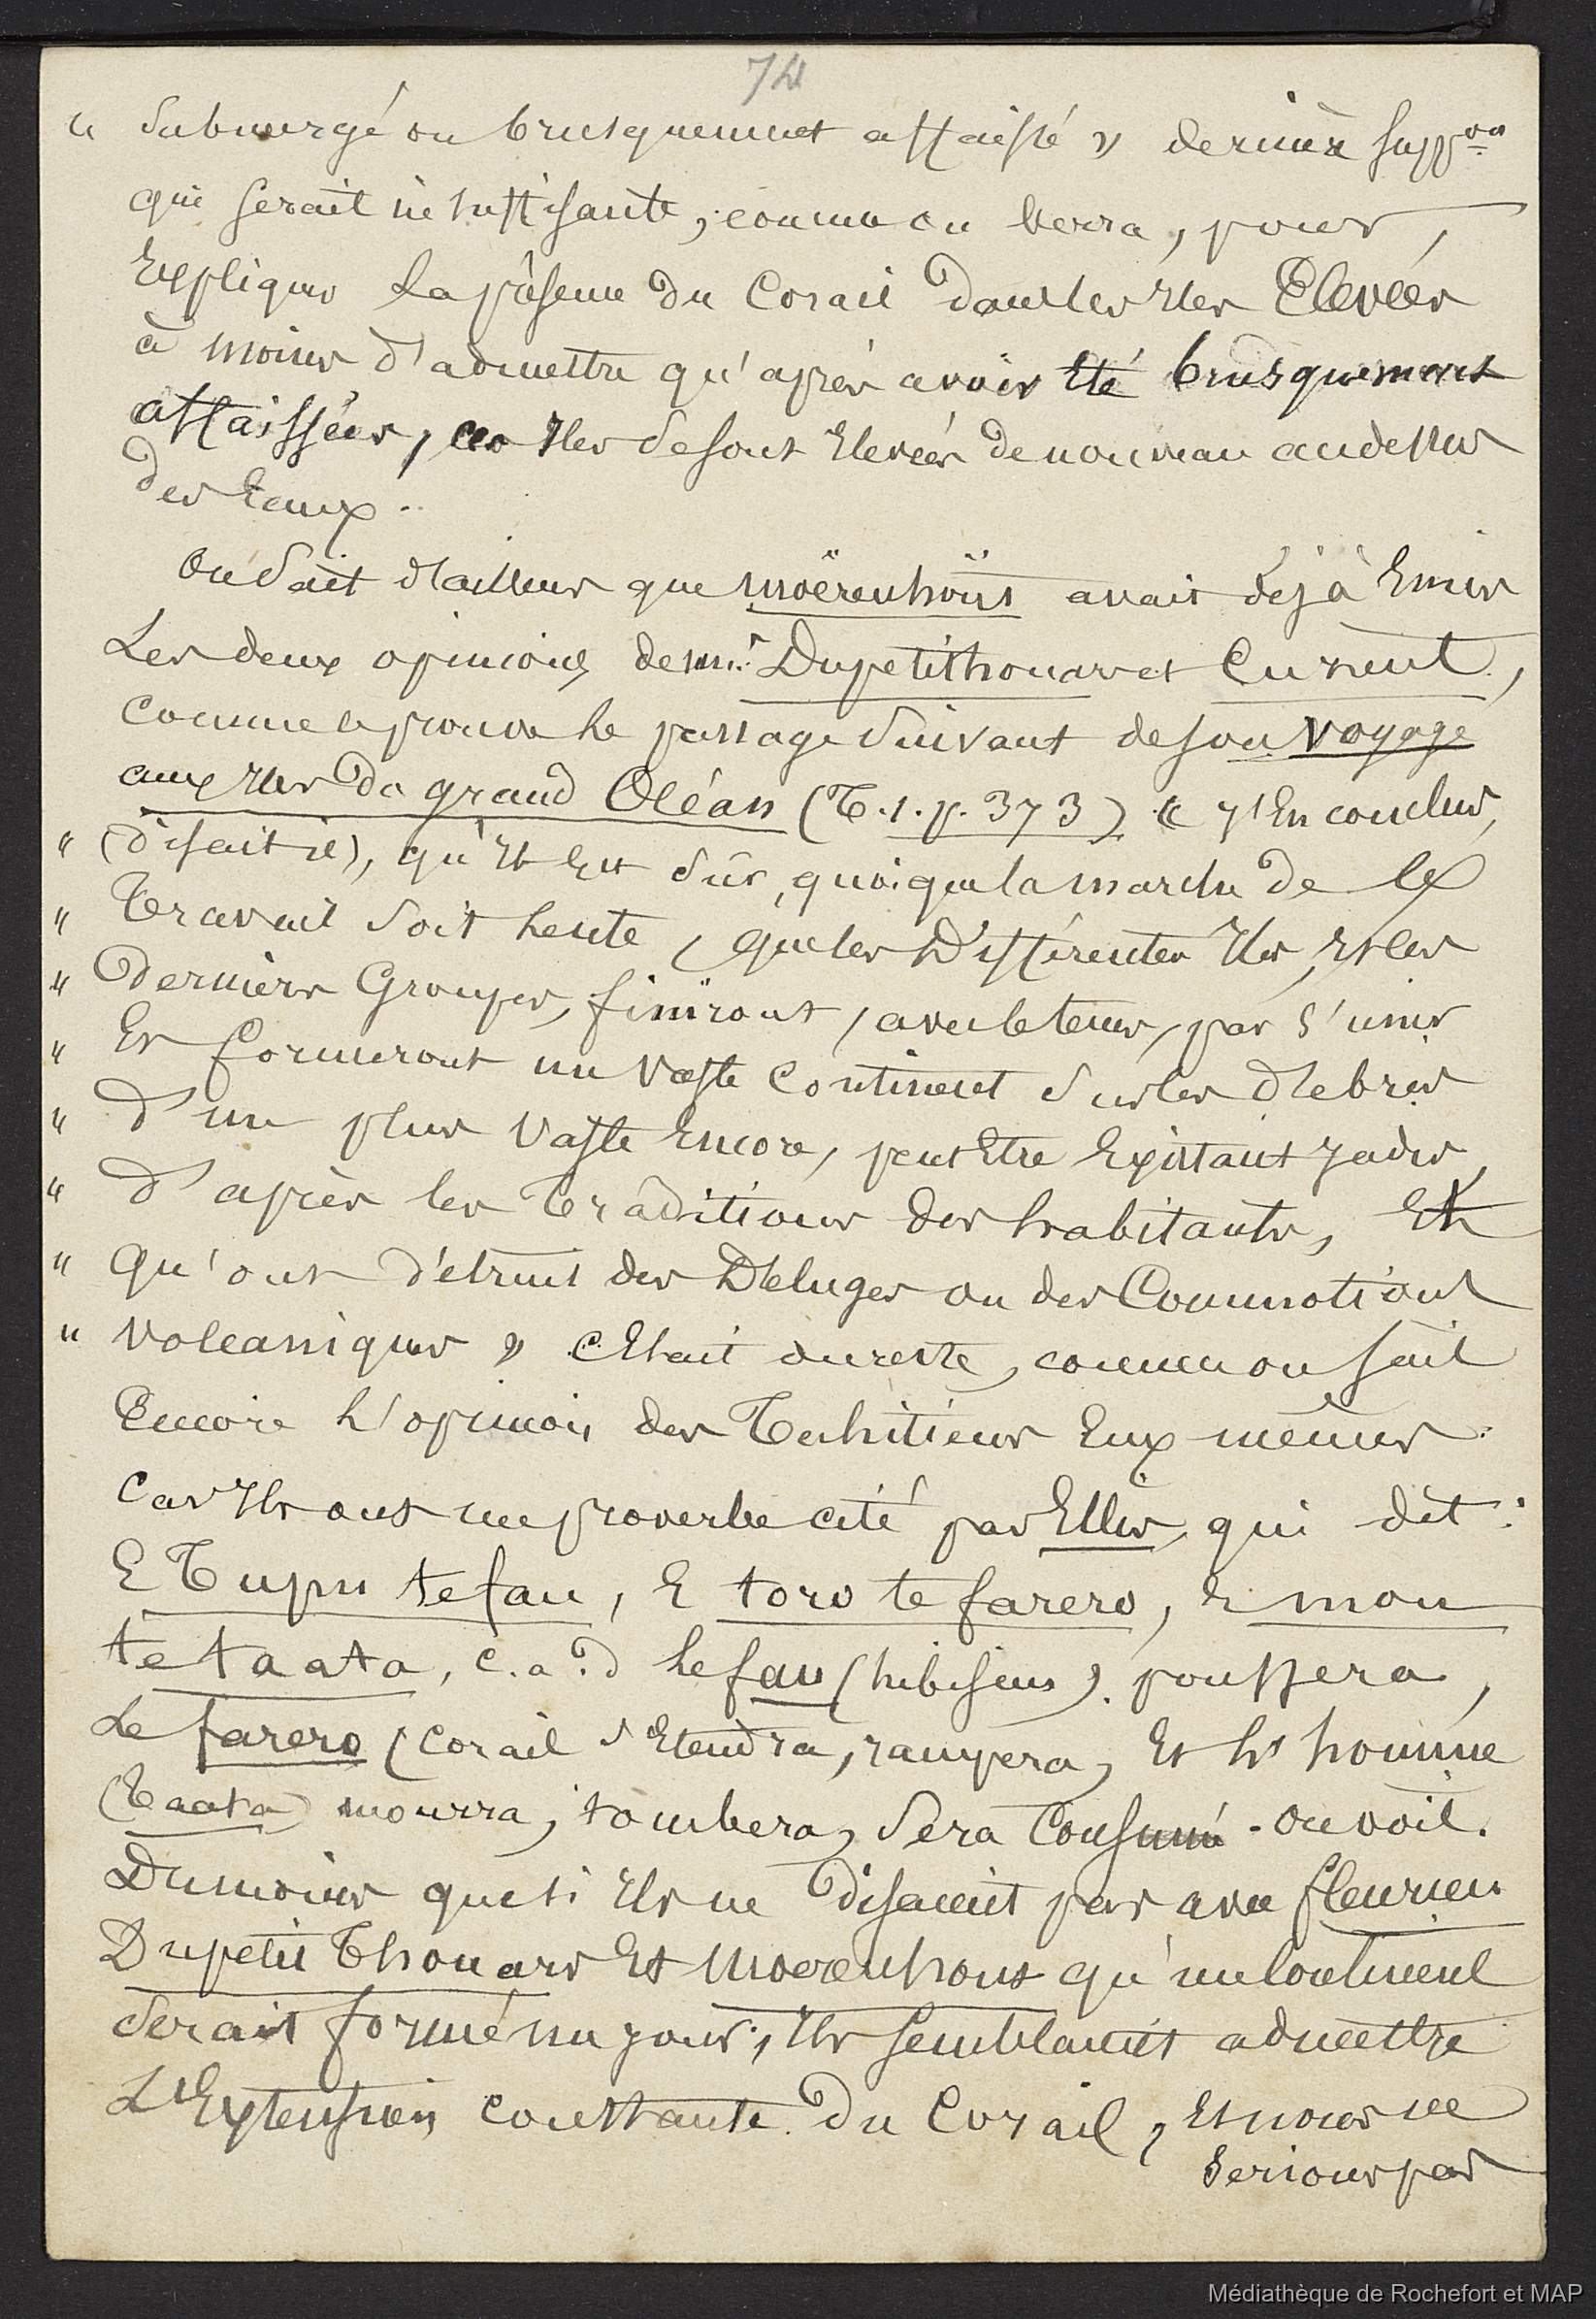 74
" submergé ou brusquement affaissé » dernière supp.on
qui serait insuffisante, comme on verra, pour,
Expliquer la présence du Corail dans les Iles Elevées
à moins d'admettre qu'après avoir été brusquement
affaissées, ces Iles se sont Elevées de nouveau audessus
des Eaux.
On sait d'ailleurs que Moërenhoüs avait déjà Emis
Les deux opinions de mrs Dupetithouars et Cuzent,
comme le prouve le passage suivant de son voyage
aux Iles du grand Océan (T.1.p. 373) « J'En conclus,
" (disait il), qu'Il Est sûr, quoique la marche de ce
" Travail soit lente, que les Différentes Iles, Et les
" Derniers Groupes, finiront, avec le tems, par s'unir
" Et formeront un vaste Continent sur les débris
" d'un plus vaste Encore, peut Etre Existant Jadis,
" d'après les Traditions des habitants, Et
" qu'ont détruit des Déluges ou des Commotions
" volcaniques » C'Etait du reste, comme on sait
Encore l'opinion des Tahitiens Eux mêmes.
Car Ils ont un proverbe cité par Ellis, qui dit :
E Tupu te fau, E toro te farero, E mou
te taata, c.a.d le fau (hibiscus) poussera,
Le farero (corail s'Etendra, rampera, Et l'homme
(Taata) mourra, tombera, sera Consumé. On voit.
Dumoins que si Ils ne disaient pas avec fleurieu
Dupetit Thouars Et Moerenhous qu'un Continent
serait formé un jour, Ils semblaient admettre
L'Extension constante du Corail, Et nous ne
serions pas
Médiathèque de Rochefort et MAP